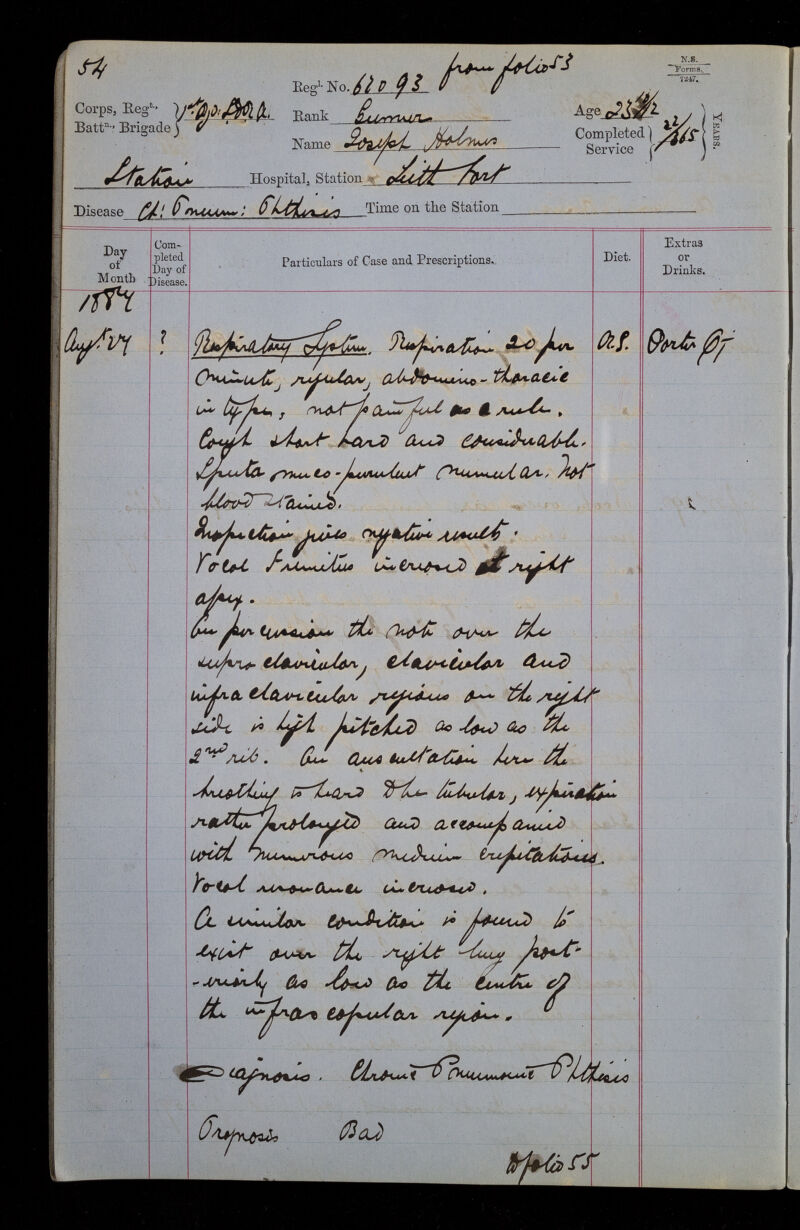 54
from folio 53
N.S.
Forms.
7247.
Regl. No. 62093
Corps, Regt.
Battn., Brigade
Rank Gunner
Age 23
Name Joseph Holmes
Completed Service
Years.
Station Hospital, Station Leith Fort
Disease Ch: Pneum: Phthisis Time on the Station
Day of Month
Completed Day of Disease.
Particulars of Case and Prescriptions.
Diet.
Extras or Drinks.
1884
Augt. 27 ? Respiratory System. Respiration 20 per Porter
minute, regular, abdomino-thoracic
in type, not painful as a rule.
Cough short hard and considerable.
Sputa muco-purulent nummular. Not
blood stained.
Inspection gives negative results.
Vocal Fremitus increased at right
apex.
On percussion the note over the
supra clavicular, clavicular and
infra clavicular regions on the right
side is high pitched as low as the
2nd rib. On auscultation here the
breathing is heard to be tubular, expiration
rather prolonged and accompanied
with numerous medium crepitations.
Vocal resonance increased.
A similar condition is found to
exist over the right lung post-
-eriorly as low as the centre of
the infrascapular region.
Diagnosis. Chronic Pneumonic Phthisis
Prognosis Bad
to folio 55